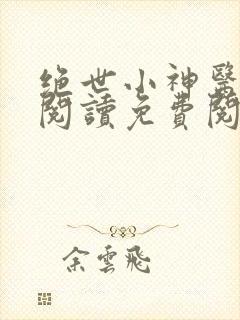 絕世小神醫
閱讀免費閱
余雲飛